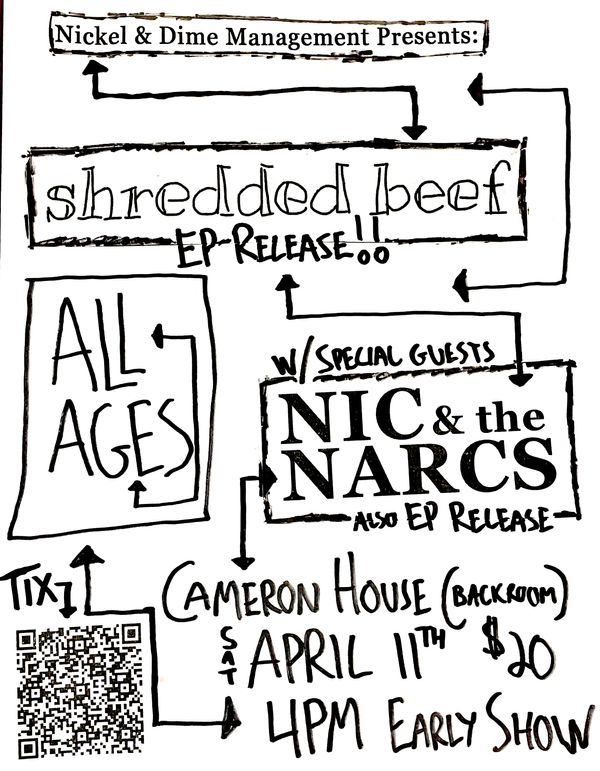 Nickel & Dime Management Presents:
shredded beef
EP-RELEASE!!
ALL
AGES
W/ SPECIAL GUESTS
NIC & the
NARCS
ALSO EP RELEASE
TIX
CAMERON HOUSE (BACKROOM)
SAT APRIL 11TH $20
4PM EARLY SHOW